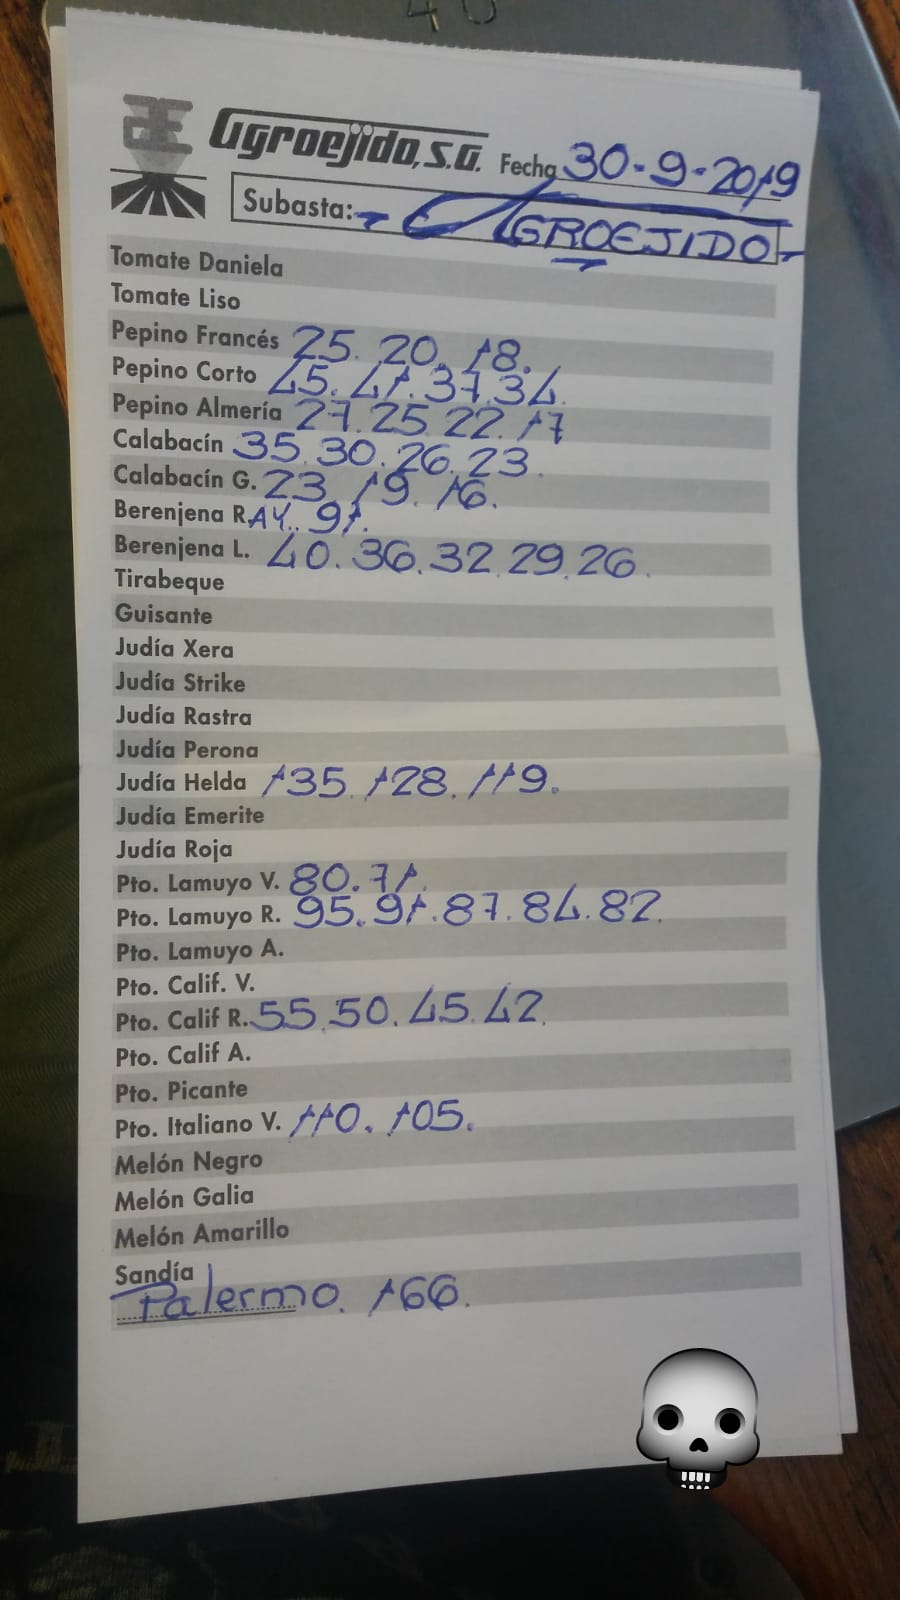 40
Agroejido, S.A. Fecha 30-9-2019
Subasta: - AGROEJIDO -
Tomate Daniela
Tomate Liso
Pepino Francés 25. 20. 18.
Pepino Corto 45. 41. 37. 34.
Pepino Almería 27. 25. 22. 17
Calabacín 35. 30. 26. 23.
Calabacín G. 23. 19. 16.
Berenjena RAY. 91.
Berenjena L. 40. 36. 32. 29. 26.
Tirabeque
Guisante
Judía Xera
Judía Strike
Judía Rastra
Judía Perona
Judía Helda 135. 128. 119.
Judía Emerite
Judía Roja
Pto. Lamuyo V. 80. 71.
Pto. Lamuyo R. 95. 91. 87. 84. 82.
Pto. Lamuyo A.
Pto. Calif. V.
Pto. Calif R. 55. 50. 45. 42.
Pto. Calif A.
Pto. Picante
Pto. Italiano V. 110. 105.
Melón Negro
Melón Galia
Melón Amarillo
Sandía
Palermo. 166.